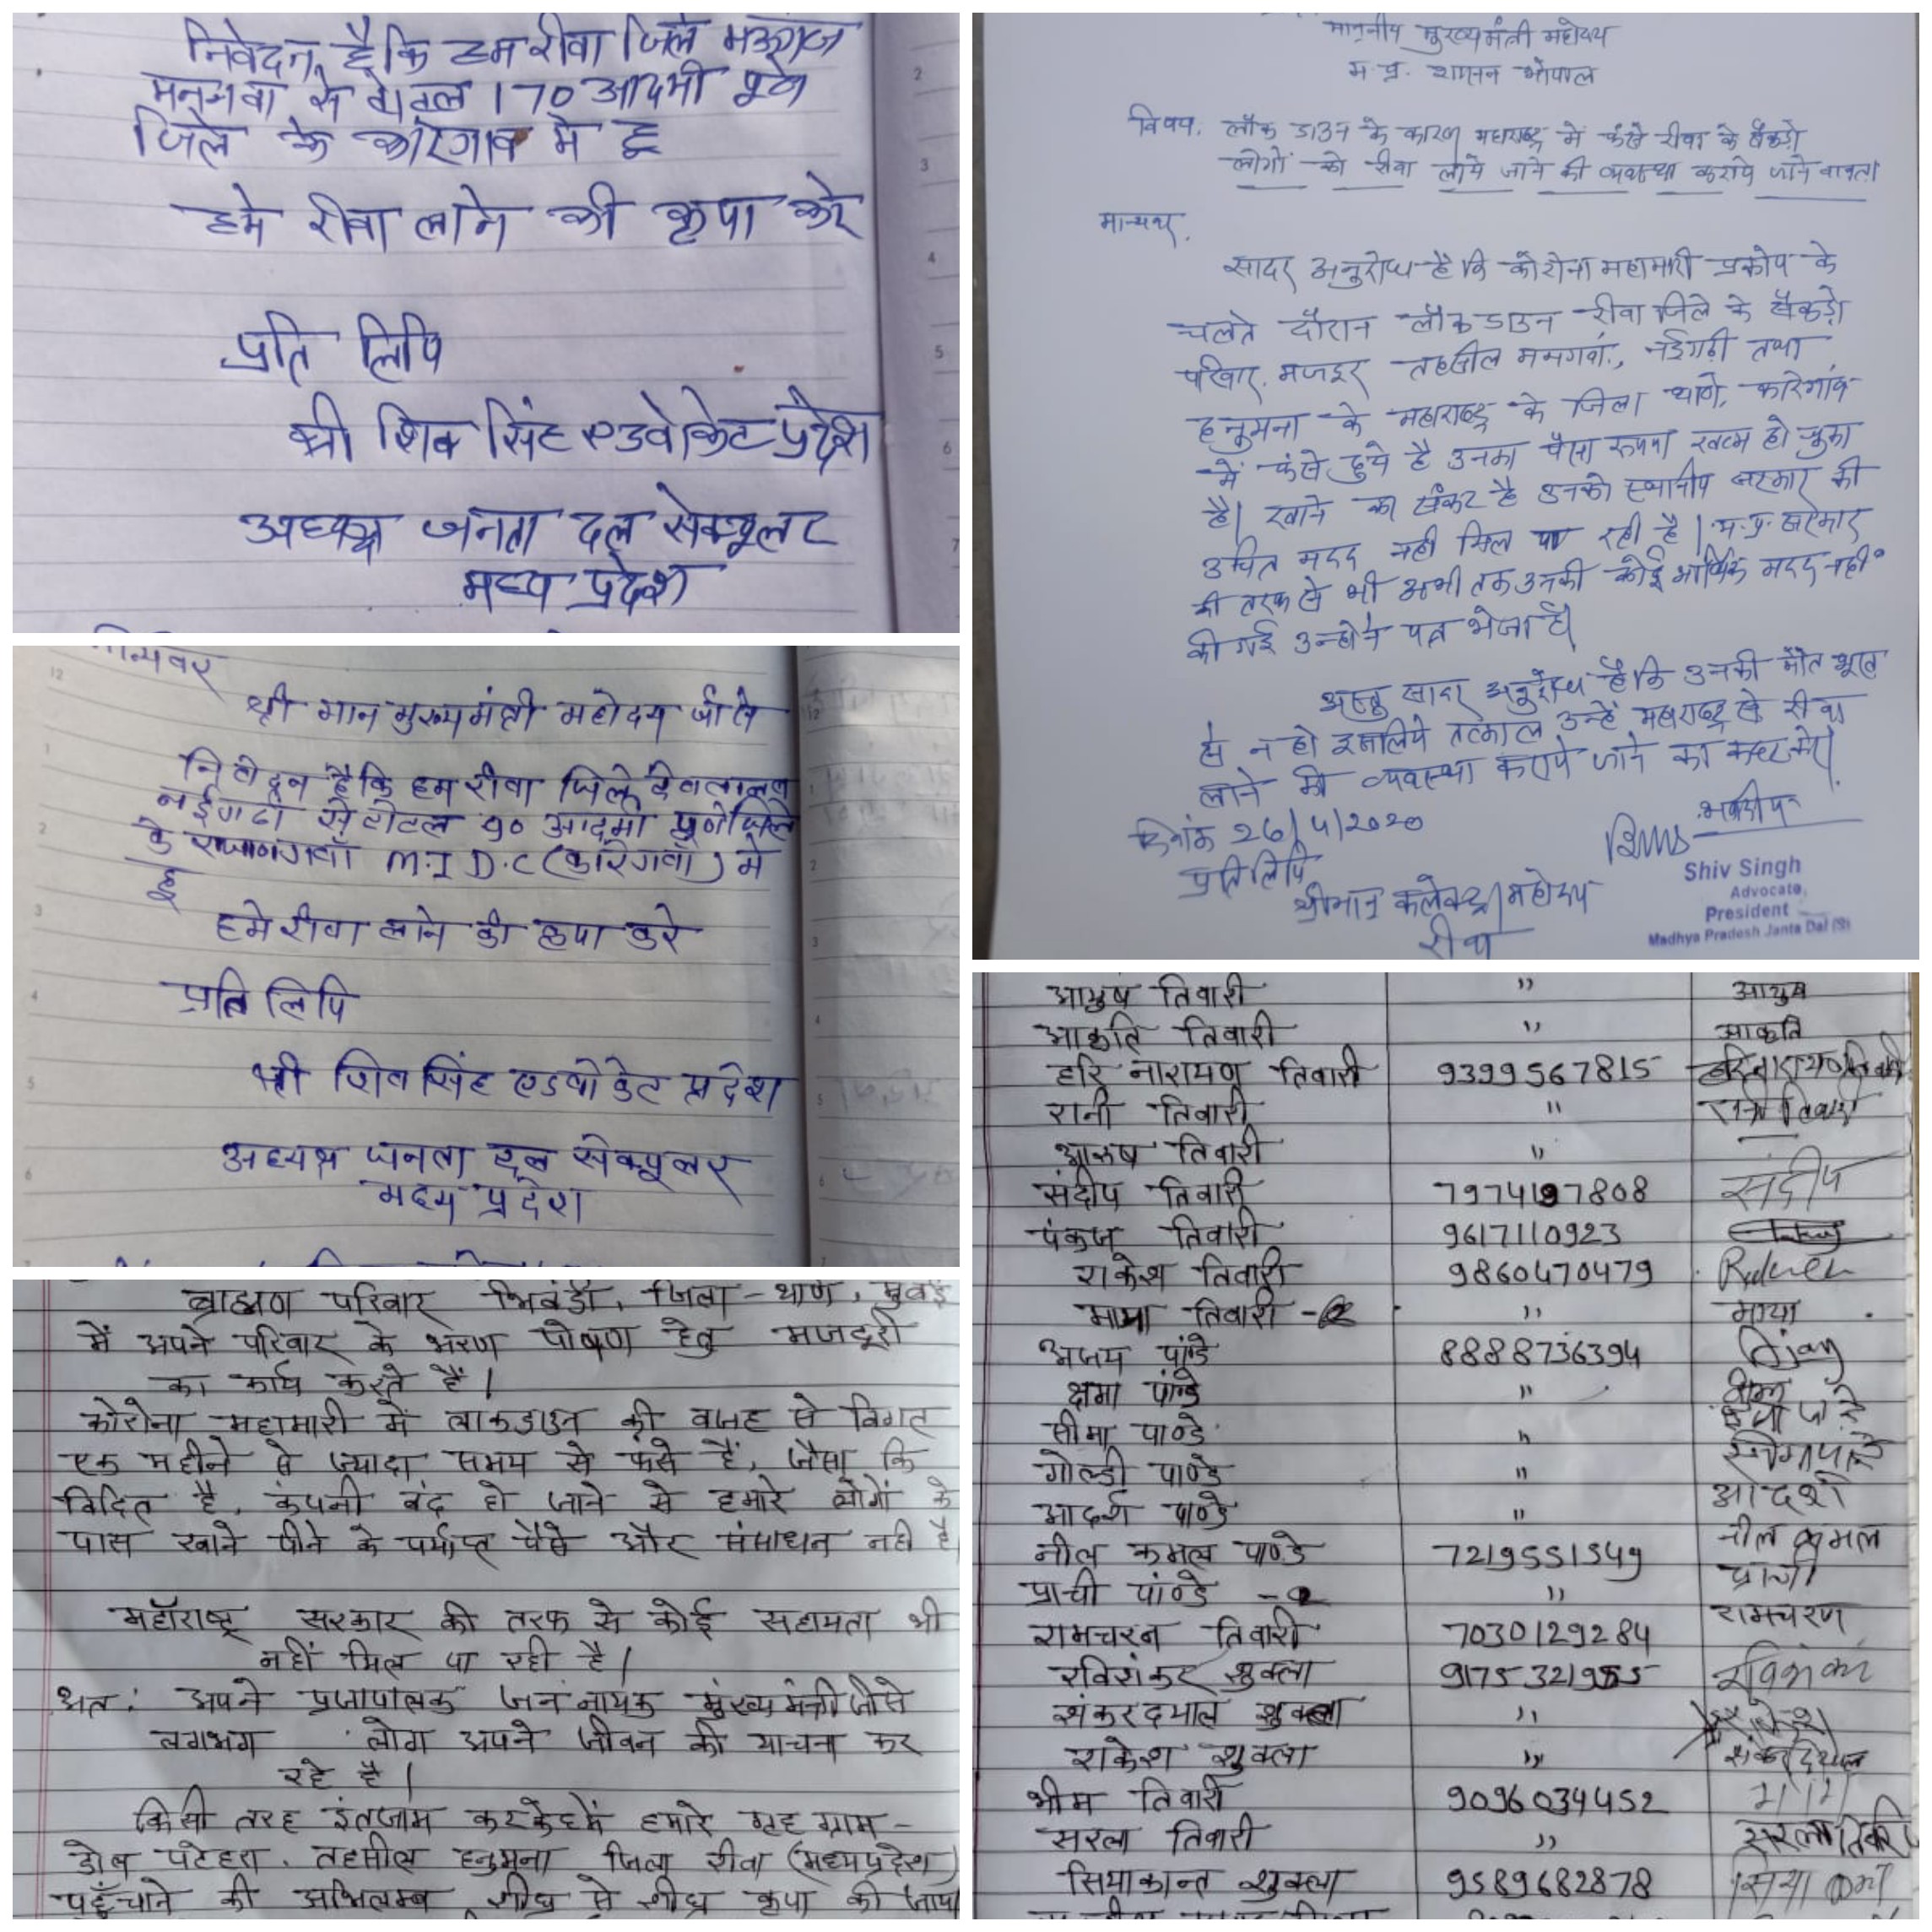 निवेदन है कि हम रीवा जिले मऊगंज
मनगवा से टोटल 170 आदमी पूणे
जिले के कारेगाव मे है
हमे रीवा लाने की कृपा करे
प्रति लिपि
श्री शिव सिंह एडवोकेट प्रदेश
अध्यक्ष जनता दल सेक्यूलर
मध्य प्रदेश
मान्यवर
श्री मान मुख्यमंत्री महोदय जी से
निवेदन है कि हम रीवा जिले देवतालाब
नईगढी से टोटल 90 आदमी पुणे जिले
के रांजणगवाँ M.I.D.C (कारेगवाँ) मे
है
हमे रीवा लाने की कृपा करे
प्रति लिपि
श्री शिव सिंह एडवोकेट प्रदेश
अध्यक्ष जनता दल सेक्यूलर
मध्य प्रदेश
ब्राह्मण परिवार भिवंडी, जिला - थाणे, मुंबई
में अपने परिवार के भरण पोषण हेतु मजदूरी
का कार्य करते हैं।
कोरोना महामारी में लाकडाउन की वजह से विगत
एक महीने से ज्यादा समय से फंसे हैं, जैसा कि
विदित है, कंपनी बंद हो जाने से हमारे लोगों के
पास खाने पीने के पर्याप्त पैसे और संसाधन नही है
महाॅराष्ट्र सरकार की तरफ से कोई सहायता भी
नहीं मिल पा रही है।
अतः अपने प्रजापालक जन नायक मुख्यमंत्री जी से
लगभग लोग अपने जीवन की याचना कर
रहे है।
किसी तरह इंतजाम करके हमें हमारे गृह ग्राम -
पटेहरा, तहसील हनुमना जिला रीवा (मध्यप्रदेश)
पहुँचाने की अविलम्ब शीघ्र से शीघ्र कृपा की जाय
माननीय मुख्यमंत्री महोदय
म.प्र. शासन भोपाल
विषय. लॉक डाउन के कारण महाराष्ट्र में फंसे रीवा के सैकड़ो
लोगों को रीवा लाये जाने की व्यवस्था कराये जाने बावत।
मान्यवर,
सादर अनुरोध है कि कोरोना महामारी प्रकोप के
चलते दौरान लॉकडाउन रीवा जिले के सैकड़ो
परिवार, मजदूर तहसील मनगवां, नईगढ़ी तथा
हनुमना के महाराष्ट्र के जिला थाणे, कारेगांव
में फंसे हुये है उनका पैसा रूपया खत्म हो चुका
है। खाने का संकट है उनको स्थानीय सरकार की
उचित मदद नही मिल पा रही है। म.प्र. सरकार
की तरफ से भी अभी तक उनकी कोई आर्थिक मदद नही
की गई उन्होंने पत्र भेजा है।
अस्तु सादर अनुरोध है कि उनकी मौत भूख
से न हो इसलिये तत्काल उन्हें महाराष्ट्र से रीवा
लाने की व्यवस्था कराये जाने का कष्ट करें।
दिनांक 26/4/2020
भवदीय
प्रतिलिपि
श्रीमान् कलेक्टर महोदय
रीवा
Shiv Singh
Advocate,
President
Madhya Pradesh Janta Dal (S)
आयुष तिवारी " आयुष
आकृति तिवारी " आकृति
हरि नारायण तिवारी 9399567815 हरिनारायण तिवारी
रानी तिवारी " रानी तिवारी
आरुष तिवारी "
संदीप तिवारी 7974197808 संदीप
पंकज तिवारी 9617110923
राकेश तिवारी 9860470479
माया तिवारी " माया
अजय पांडे 8888736394 Ajay
क्षमा पांडे "
सीमा पाण्डे "
गोल्डी पाण्डे "
आदर्श पाण्डे " आदर्श
नील कमल पाण्डे 7219551549 नील कमल
प्राची पांण्डे " प्राची
रामचरन तिवारी 7030129284 रामचरण
रविशंकर शुक्ला 9175321955 रविशंकर
शंकरदयाल शुक्ला "
राकेश शुक्ला " शंकर दयाल
भीम तिवारी 9096034452
सरला तिवारी " सरला तिवारी
सियाकान्त शुक्ला 9589682878